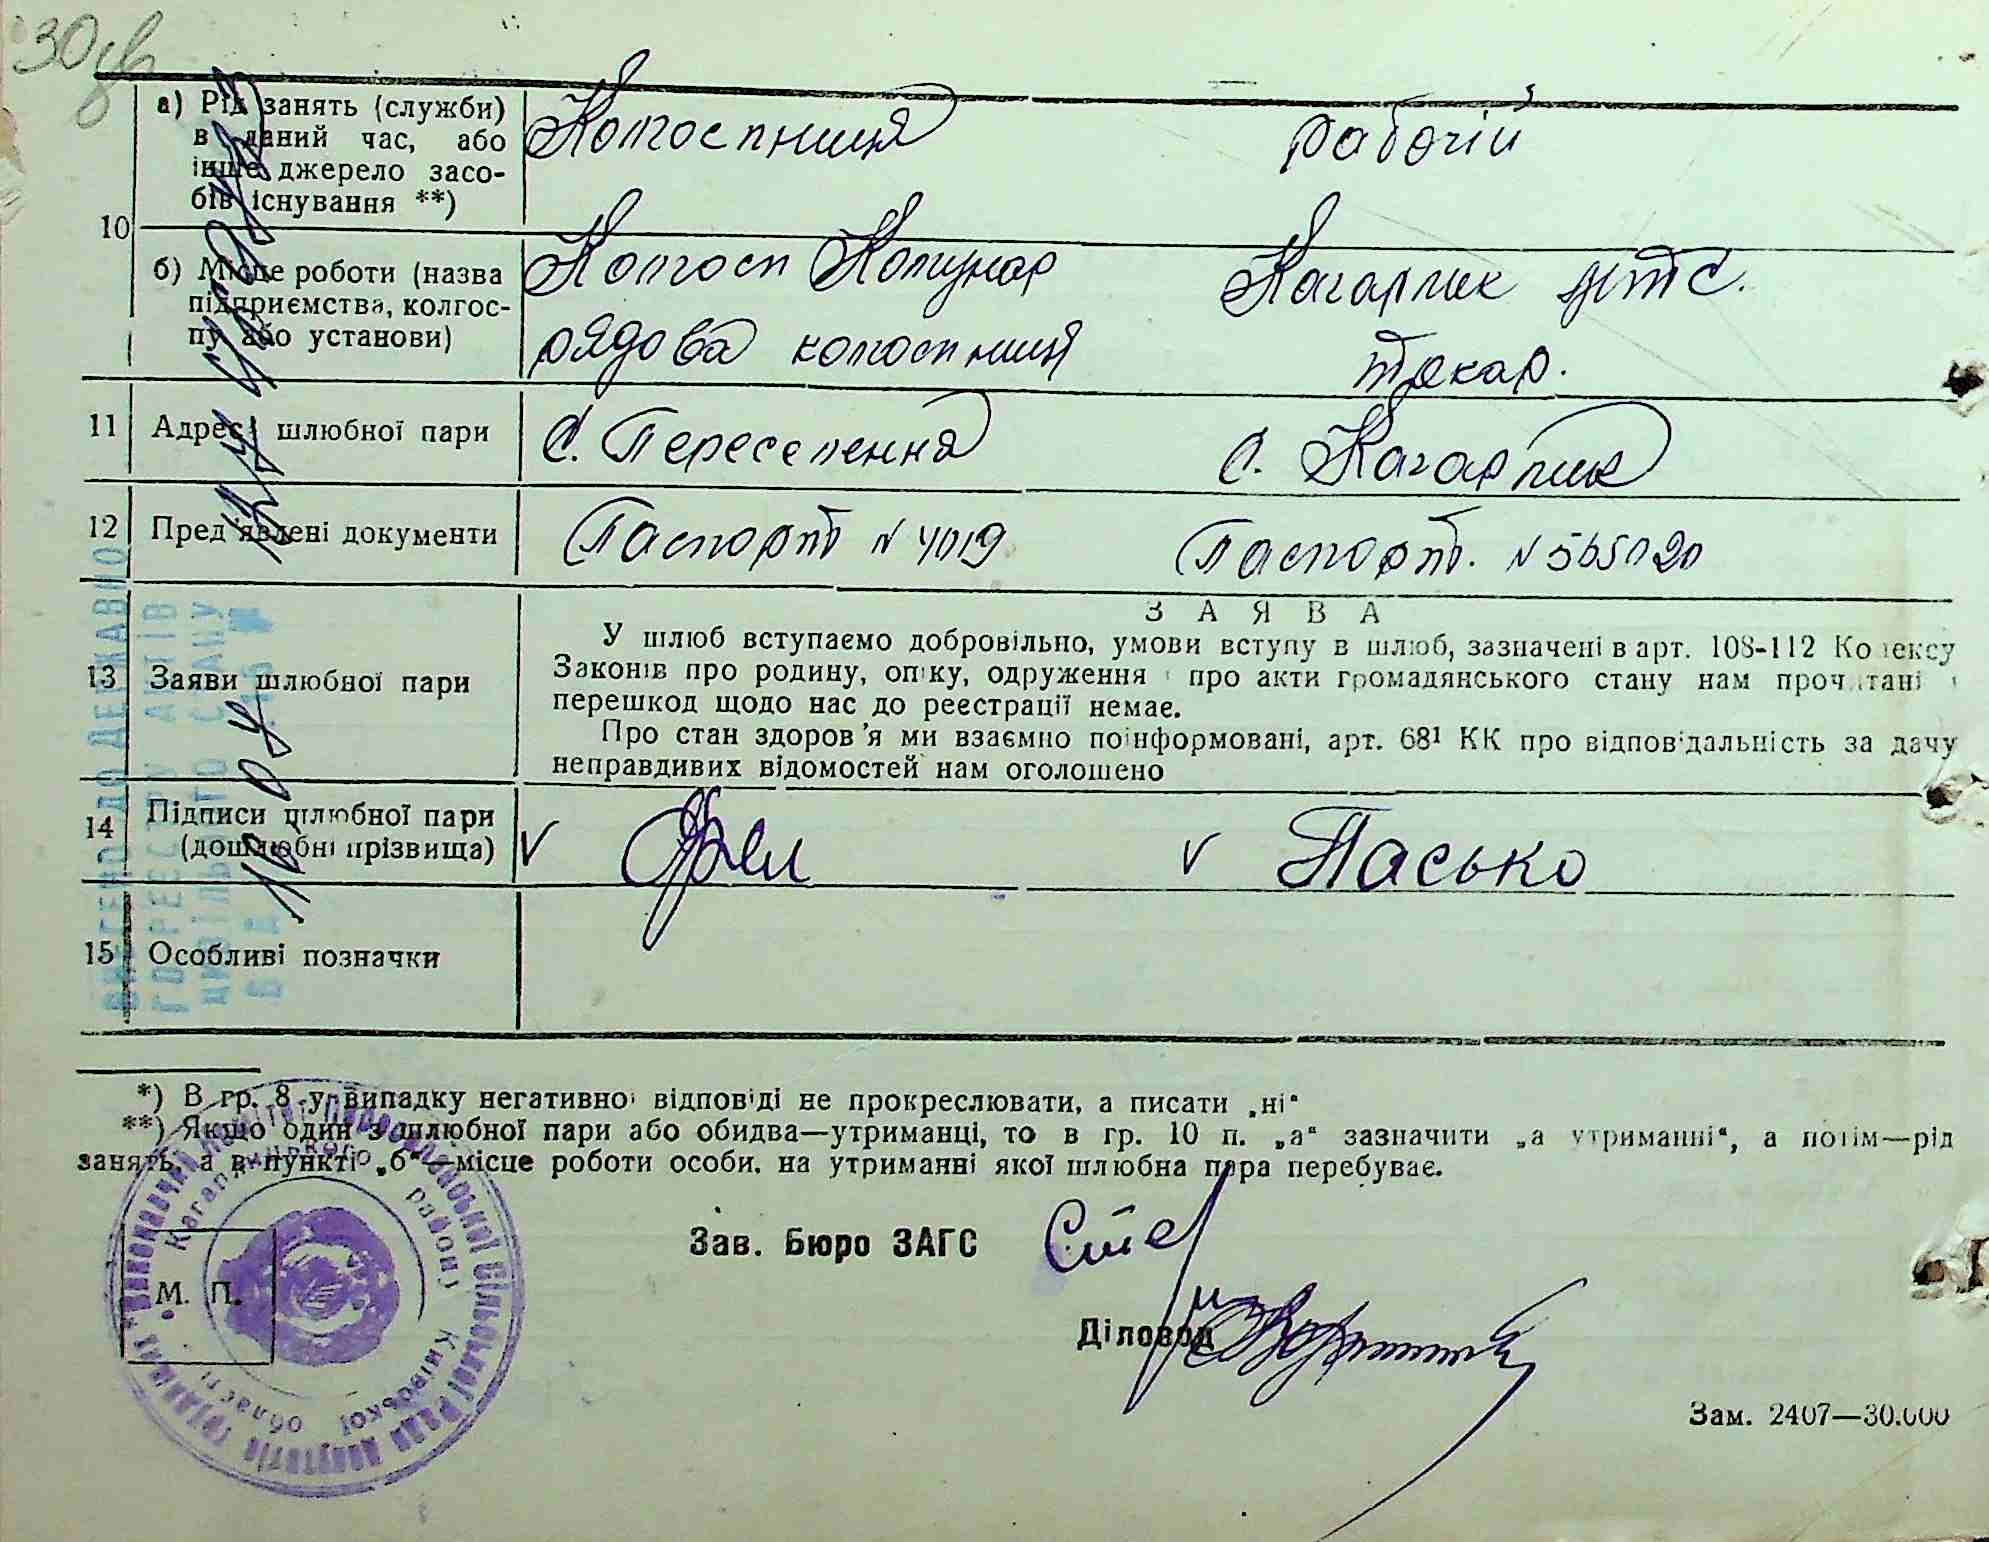 30зв
а) Рід занять (служби) в даний час, або інше джерело засобів існування **)
Колгоспниця
рабочій
10
б) Місце роботи (назва підприємства, колгоспу або установи)
Колгосп Комунар
рядова колгоспниця
Кагарлик МТС.
токар.
11 Адреса шлюбної пари
с. Переселення
с. Кагарлик
12 Пред'явлені документи
Паспорт N 4019
Паспорт. N 565020
13 Заяви шлюбної пари
ЗАЯВА
У шлюб вступаємо добровільно, умови вступу в шлюб, зазначені в арт. 108-112 Кодексу
Законів про родину, опіку, одруження і про акти громадянського стану нам прочитані і
перешкод щодо нас до реєстрації немає.
Про стан здоров'я ми взаємно поінформовані, арт. 68¹ КК про відповідальність за дачу
неправдивих відомостей нам оголошено
14 Підписи шлюбної пари
(дошлюбні прізвища)
V
V Пасько
15 Особливі позначки
ВНЕСЕНО ДО ДЕРЖАВНО
ГО РЕЄСТРУ АКТІВ
ЦИВІЛЬНОГО СТАНУ
*) В гр. 8 у випадку негативної відповіді не прокреслювати, а писати „ні“
**) Якщо один з шлюбної пари або обидва—утриманці, то в гр. 10 п. „а“ зазначити „а утриманні“, а потім—рід
занять, а в пункті „б“—місце роботи особи, на утриманні якої шлюбна пара перебуває.
Зав. Бюро ЗАГС
М. П.
Діловод
виконавчий комітет Переселенської сільської Ради депутатів трудящих
Кагарлицького району Київської області
Зам. 2407—30.000